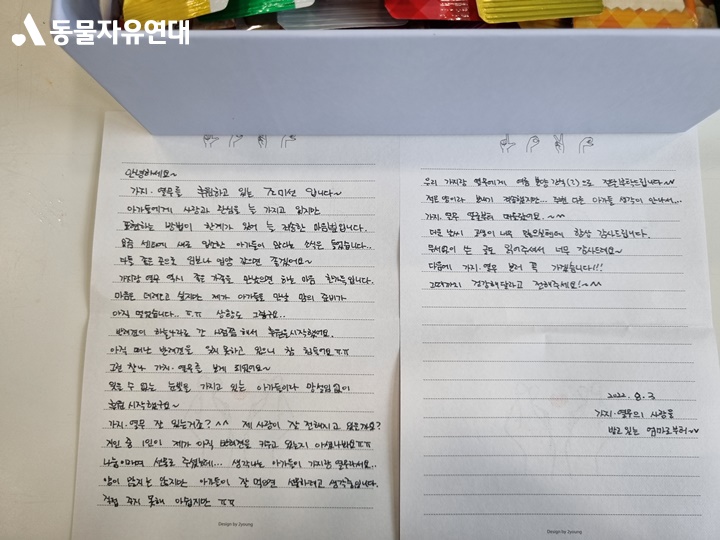 동물자유연대
안녕하세요~
가지·열무를 후원하고 있는 조미선 입니다~
아가들에게 사랑과 관심을 늘 가지고 있지만
표현하는 방법이 한계가 있어 늘 죄송한 마음뿐입니다.
요즘 센터에 새로 입소한 아가들이 많다는 소식을 들었습니다..
다들 좋은 곳으로 임보나 입양 갔으면 좋겠어요~
가지랑 열무 역시 좋은 가족을 만났으면 하는 마음 한가득입니다.
마음은 데려오고 싶지만 제가 아가들을 만날 맘의 준비가
아직 덜됐습니다.. ㅠㅠ 상황도 그렇구요..
반려견이 하늘나라로 간 시점쯤 해서 후원을 시작했어요.
아직 떠난 반려견을 잊지 못하고 있으니 참 힘들어요ㅠㅠ
그런 찰나 가지·열무를 보게 되었어요~
잊을 수 없는 눈빛을 가지고 있는 아가들이라 망설임없이
후원 시작했구요~
가지·열무 잘 있는거죠? ^^ 제 사랑이 잘 전해지고 있을까요?
지인 중 1인이 제가 아직 반려견을 키우고 있는지 아셨나봐요ㅠㅠ
선물로 주셨는데... 생각나는 아가들이 가지랑 열무라서요..
양이 많지는 않지만 아가들이 잘 먹으면 선물하려고 생각중입니다.
직접 주지 못해 아쉽지만 ㅠㅠ
Design by 2young
우리 가지랑 열무에게 여름 보양 간식(?)으로 전달부탁드립니다~
적은 양이라 보내기 죄송했지만... 주변 다른 아가들 생각이 안나서...
가지·열무 얼굴부터 떠올랐어요. ~^^
더운 날씨 고생이 너무 많으실텐데 항상 감사드립니다.
두서없이 쓴 글도 읽어주셔서 너무 감사드려요~
다음에 가지·열무 보러 꼭 가겠습니다!!
그때까지 건강해달라고 전해주세요!~^^
2022. 8. 3
가지·열무의 사랑을
받고있는 엄마로부터~
Design by 2young